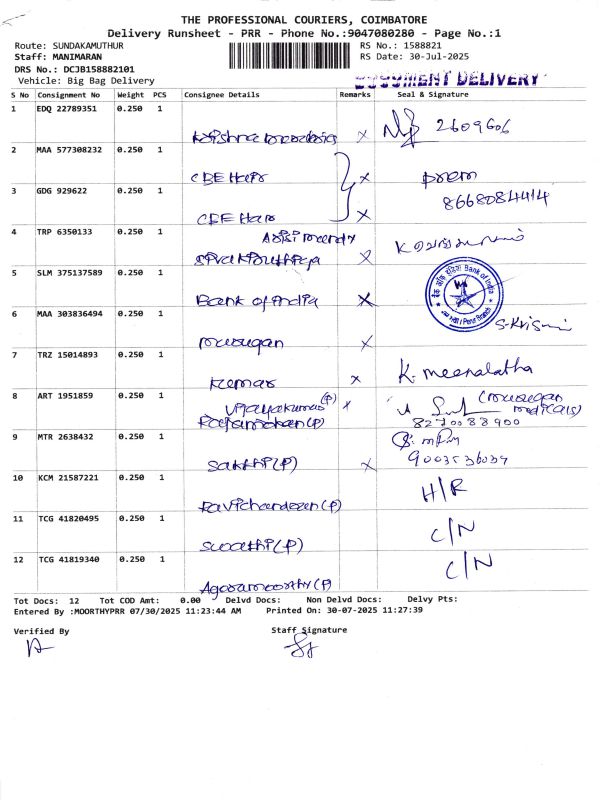 THE PROFESSIONAL COURIERS, COIMBATORE
Delivery Runsheet - PRR - Phone No.:9047080280 - Page No.:1
Route: SUNDAKAMUTHUR RS No.: 1588821
Staff: MANIMARAN RS Date: 30-Jul-2025
DRS No.: DCJB158882101
Vehicle: Big Bag Delivery DOCUMENT DELIVERY
S No Consignment No Weight PCS Consignee Details Remarks Seal & Signature
1 EDQ 22789351 0.250 1
Krishna x 2609606
2 MAA 577308232 0.250 1
CBE Hair x Prem
3 GDG 929622 0.250 1 8668084414
CBE Hair x
4 TRP 6350133 0.250 1
x
5 SLM 375137589 0.250 1
Bank of India x Bank of India
6 MAA 303836494 0.250 1
Murugan x
7 TRZ 15014893 0.250 1
Kumar x K. Meenalatha
8 ART 1951859 0.250 1 Vijayakumar (P) x (Murugan Medicals)
Rajamohan (P) 8270088900
9 MTR 2638432 0.250 1
Sakthi (P) x
10 KCM 21587221 0.250 1 H/R
Ravichandran (P)
11 TCG 41820495 0.250 1 C/N
Swathi (P)
12 TCG 41819340 0.250 1 C/N
(P)
Tot Docs: 12 Tot COD Amt: 0.00 Delvd Docs: Non Delvd Docs: Delvy Pts:
Entered By :MOORTHYPRR 07/30/2025 11:23:44 AM Printed On: 30-07-2025 11:27:39
Verified By Staff Signature